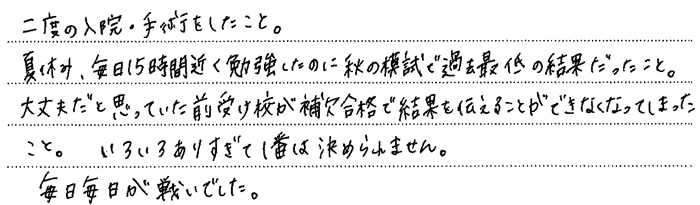 二度の入院・手術をしたこと。
夏休み、毎日15時間近く勉強したのに秋の模試で過去最低の結果だったこと。
大丈夫だと思っていた前受け校が補欠合格で結果を伝えることができなくなってしまった
こと。 いろいろありすぎて1番は決められません。
毎日毎日が戦いでした。